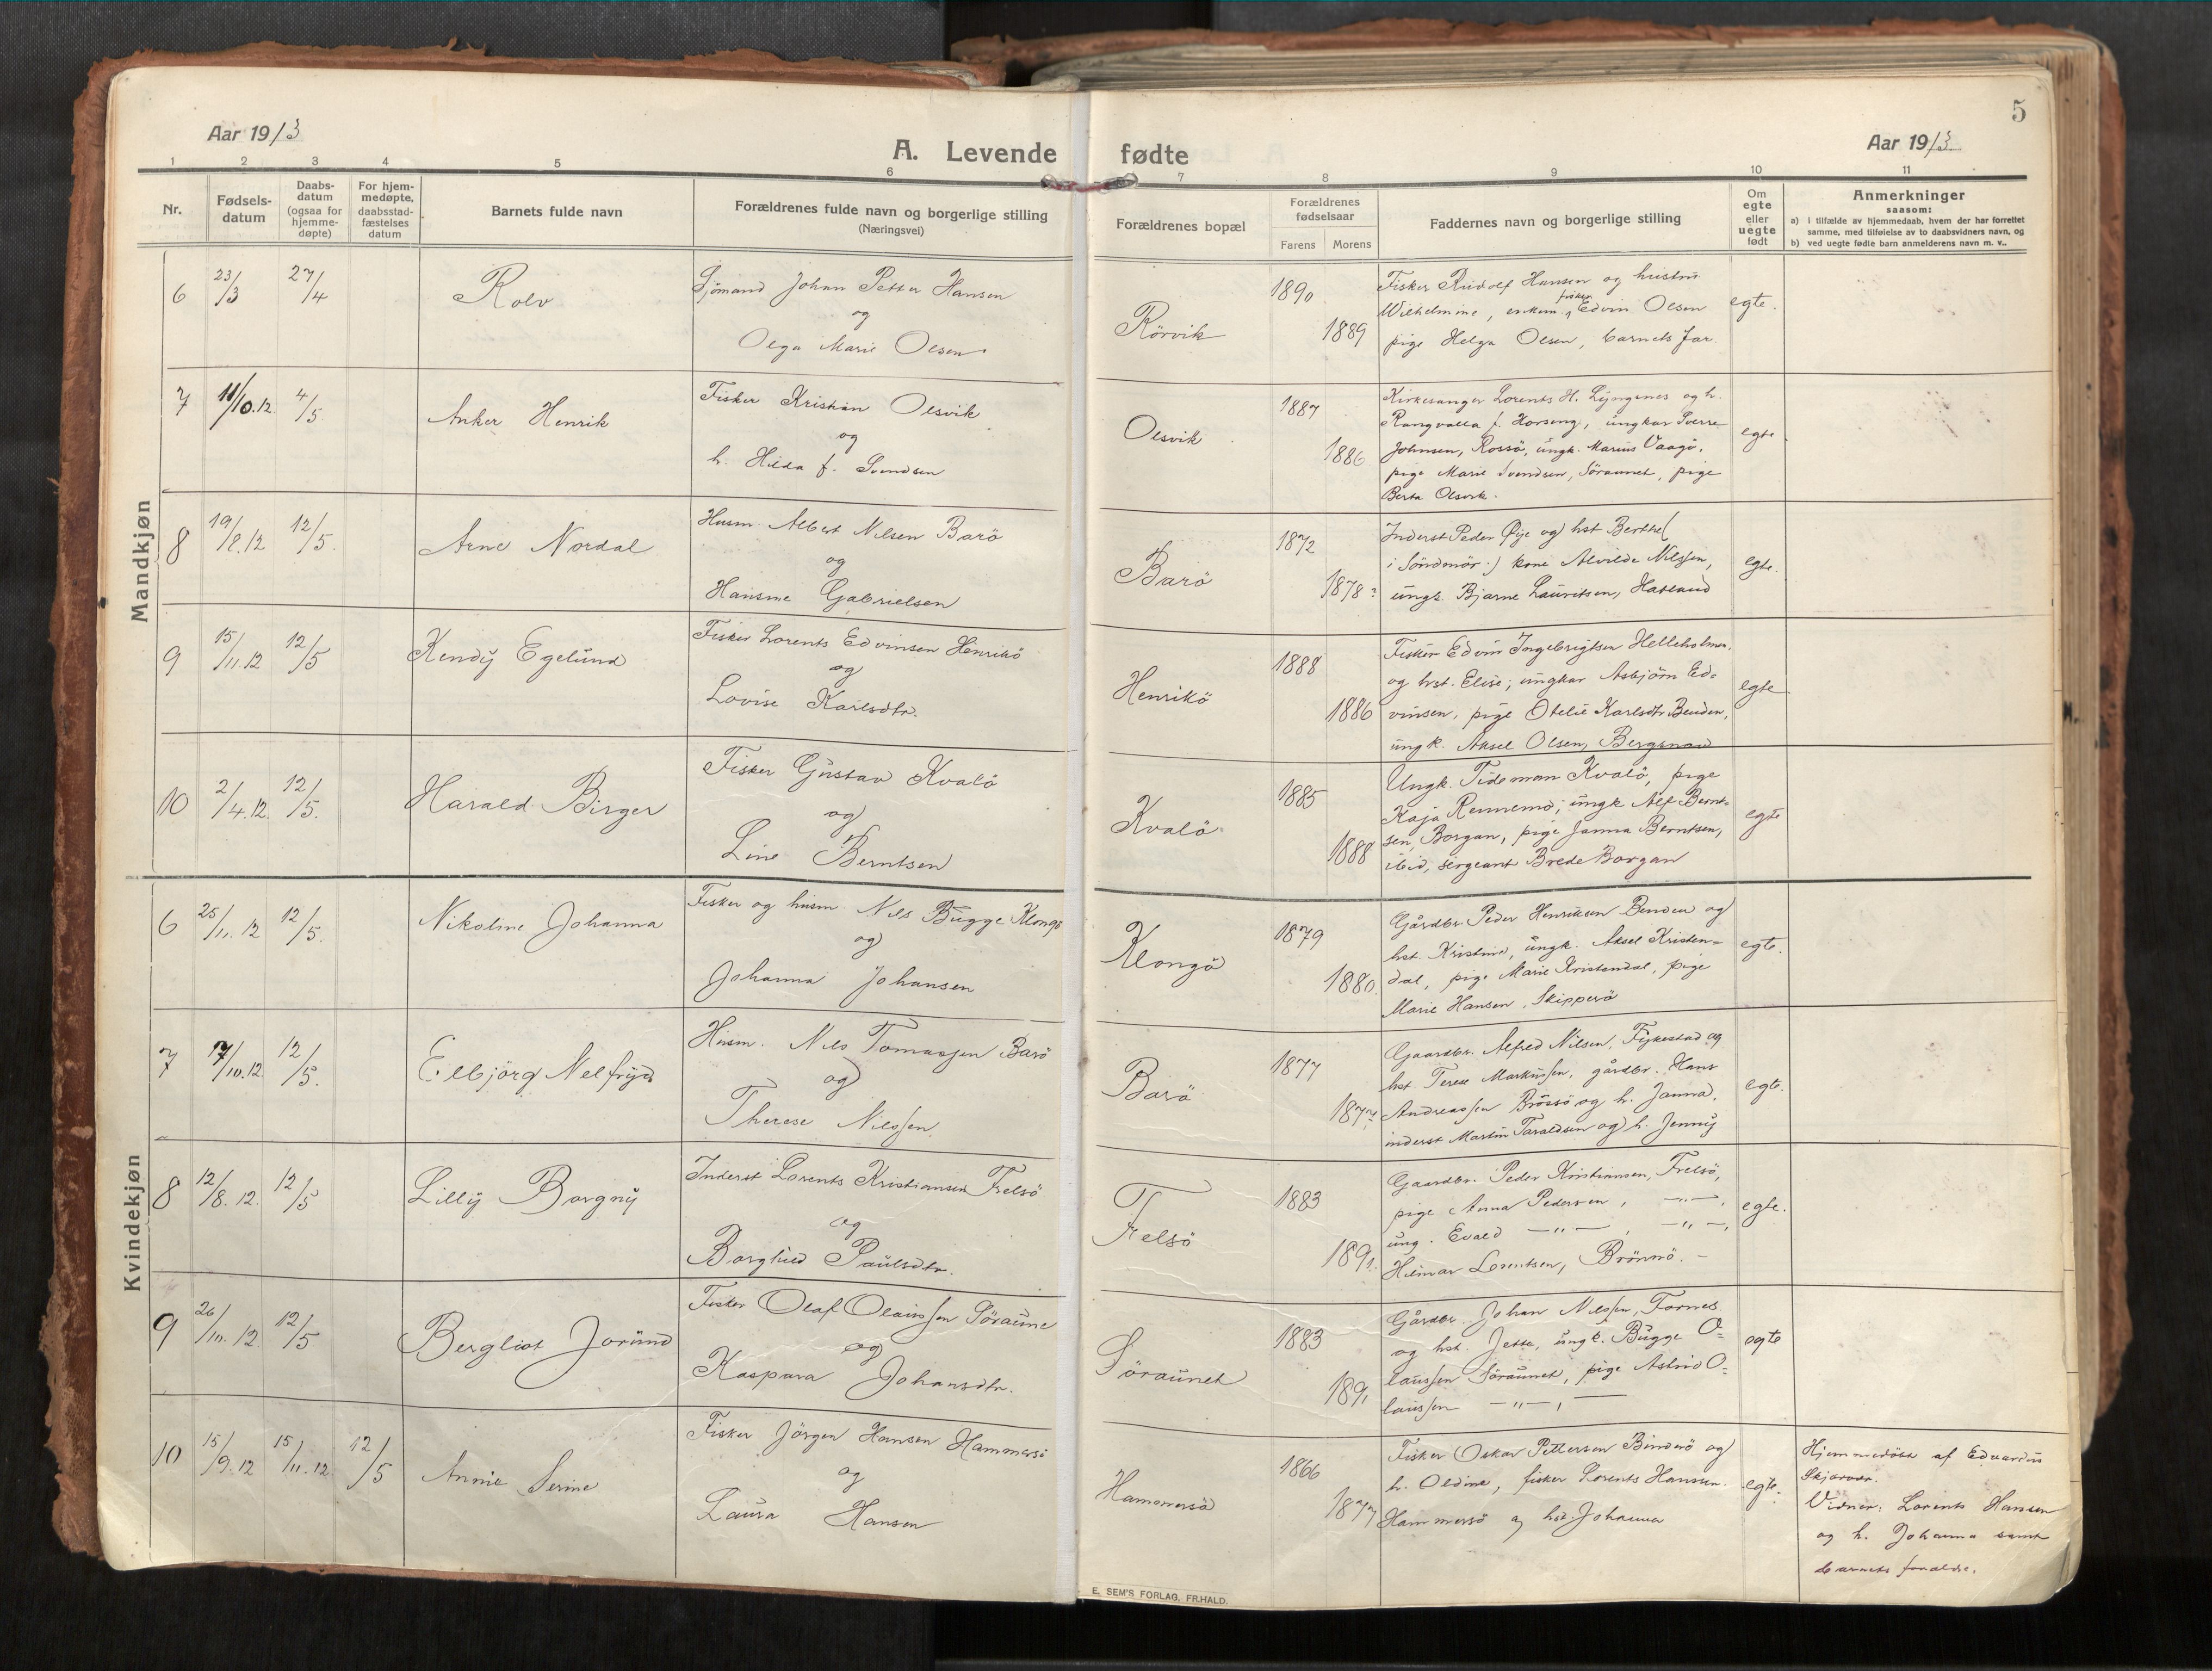 5
Aar 1913
A. Levende fødte
Aar 1913.
1 2 3 4 5 6 7 8 9 10 11
Nr.
Fødsels-
datum
Daabs-
datum
(ogsaa for
hjemme-
døpte)
For hjem-
medøpte,
daabsstad-
fæstelses
datum
Barnets fulde navn
Forældrenes fulde navn og borgerlige stilling
(Næringsvei)
Forældrenes bopæl
Forældrenes
fødselsaar
Farens Morens
Faddernes navn og borgerlige stilling
Om
egte
eller
uegte
født
Anmerkninger
saasom:
a) i tilfælde av hjemmedaab, hvem der har forrettet
samme, med tilføielse av to daabsvidners navn, og
b) ved uegte fødte barn anmelderens navn m. v..
Mandkjøn
6 23/3 27/4 Rolv
Sjömand Johan Petter Hansen
og
Olga Marie Olsen.
Rörvik
1890
1889
Fisker Rudolf Hansen og hustru
Wilhelmine, enkem. fisker Edvin Olsen
pige Helga Olsen, barnets far.
egte.
7 11/10.12. 4/5. Anker Henrik
Fisker Kristian Olsvik
og
h. Hilda f. Svendsen
Olsvik
1887
1886
Kirkesanger Lorents H. og h.
Rangvalla f. Horseng, ungkar Sverre
Johnsen, Rossö, ungk. Marius Vaagö,
pige Marie Svendsen, Söraunet, pige
Berta Olsvik.
egte
8 19/8.12 12/5. Arne Nordal
Husm. Albert Nilsen Barö
og
Hansine Gabrielsen
Barö
1872
1878?
Inderst Peder Öye og hst Berthe(
i Söndmör.) kone Alvilde Nilssen,
ungk. Bjarne Lauritsen, Hatland
egte.
9 15/11.12 12/5 Kendy Egelund
Fisker Lorents Edvinsen Henrikö
og
Lovise Karlsdtr.
Henrikö
1888
1886
Fisker Edvin Ingebrigtsen Helleholmen.
og hst. Elise; ungkar Asbjörn Ed-
vinsen, pige Otelie Karlsdtr Benden,
ungk. Aksel Olsen, Bergsnov
egte
10 2/4.12. 12/5. Harald Birger
Fisker Gustav Kvalö
og
Line Berntsen
Kvalö
1885
1888
Ungk. Tideman Kvalö, pige
Kaja Rennemo; ungk Alf Bernt-
sen, Borgan, pige Janna Berntsen,
ibid, sergeant Brede Borgan
egte
Kvindekjøn
6 25/11.12 12/5. Nikoline Johanna
Fisker og husm Nils Bugge Klongö
og
Johanna Johansen
Klongö
1879
1880.
Gårdbr. Peder Henriksen Benden og
hst. Kristine, ungk. Aksel Kristen-
dal, pige Marie Kristendal, pige
Marie Hansen, Skipperö
egte.
7 17/10.12. 12/5. Elbjörg Nelfryd
Husm. Nils Tomassen Barö
og
Therese Nilssen.
Barö
1877
Gaardbr. Alfred Nilsen, Fykestad og
hst. Terese Markussen, gårdbr. Hans
Andreassen Brössö og h. Janna,
inderst Martin Taraldsen og h. Jenny
egte.
8 12/8.12. 12/5 Lilly Borgny
Inderst Lorents Kristiansen Frelsö
og
Borghild Paulsdtr.
Frelsö
1883
1891.
Gaardbr. Peder Kristiansen, Frelsö,
pige Anna Pedersen, —"—,
ung. Evald —"—, —"—,
Hilmar Lorentsen, Brönnö. —
egte.
9 26/10.12. 12/5 Bergliot Jorund
Fisker Olaf Olaussen Söraune
og
Kaspara Johansdtr.
Söraunet
1883
1891
Gårdbr. Johan Nilssen, Fornes.
og hst. Jette, ungk. Bugge O-
laussen Söraunet, pige Astrid O-
laussen —"—, —
egte
10 15/9.12 15/11.12. 12/5 Annie Serine
Fisker Jörgen Hansen Hammersö
og
Laura Hansen
Hammersö
1866
1877
Fisker Oskar Pettersen Binderö og
h. Oldine, fisker Lorents Hanssen.
Hammersö og hst. Johanna
egte.
Hjemmedöbt af Edvardus
Skjærvær.
Vidner: Lorents Hansen
og h. Johanna samt
barnets forældre.
E. SEM'S FORLAG, FR.HALD.